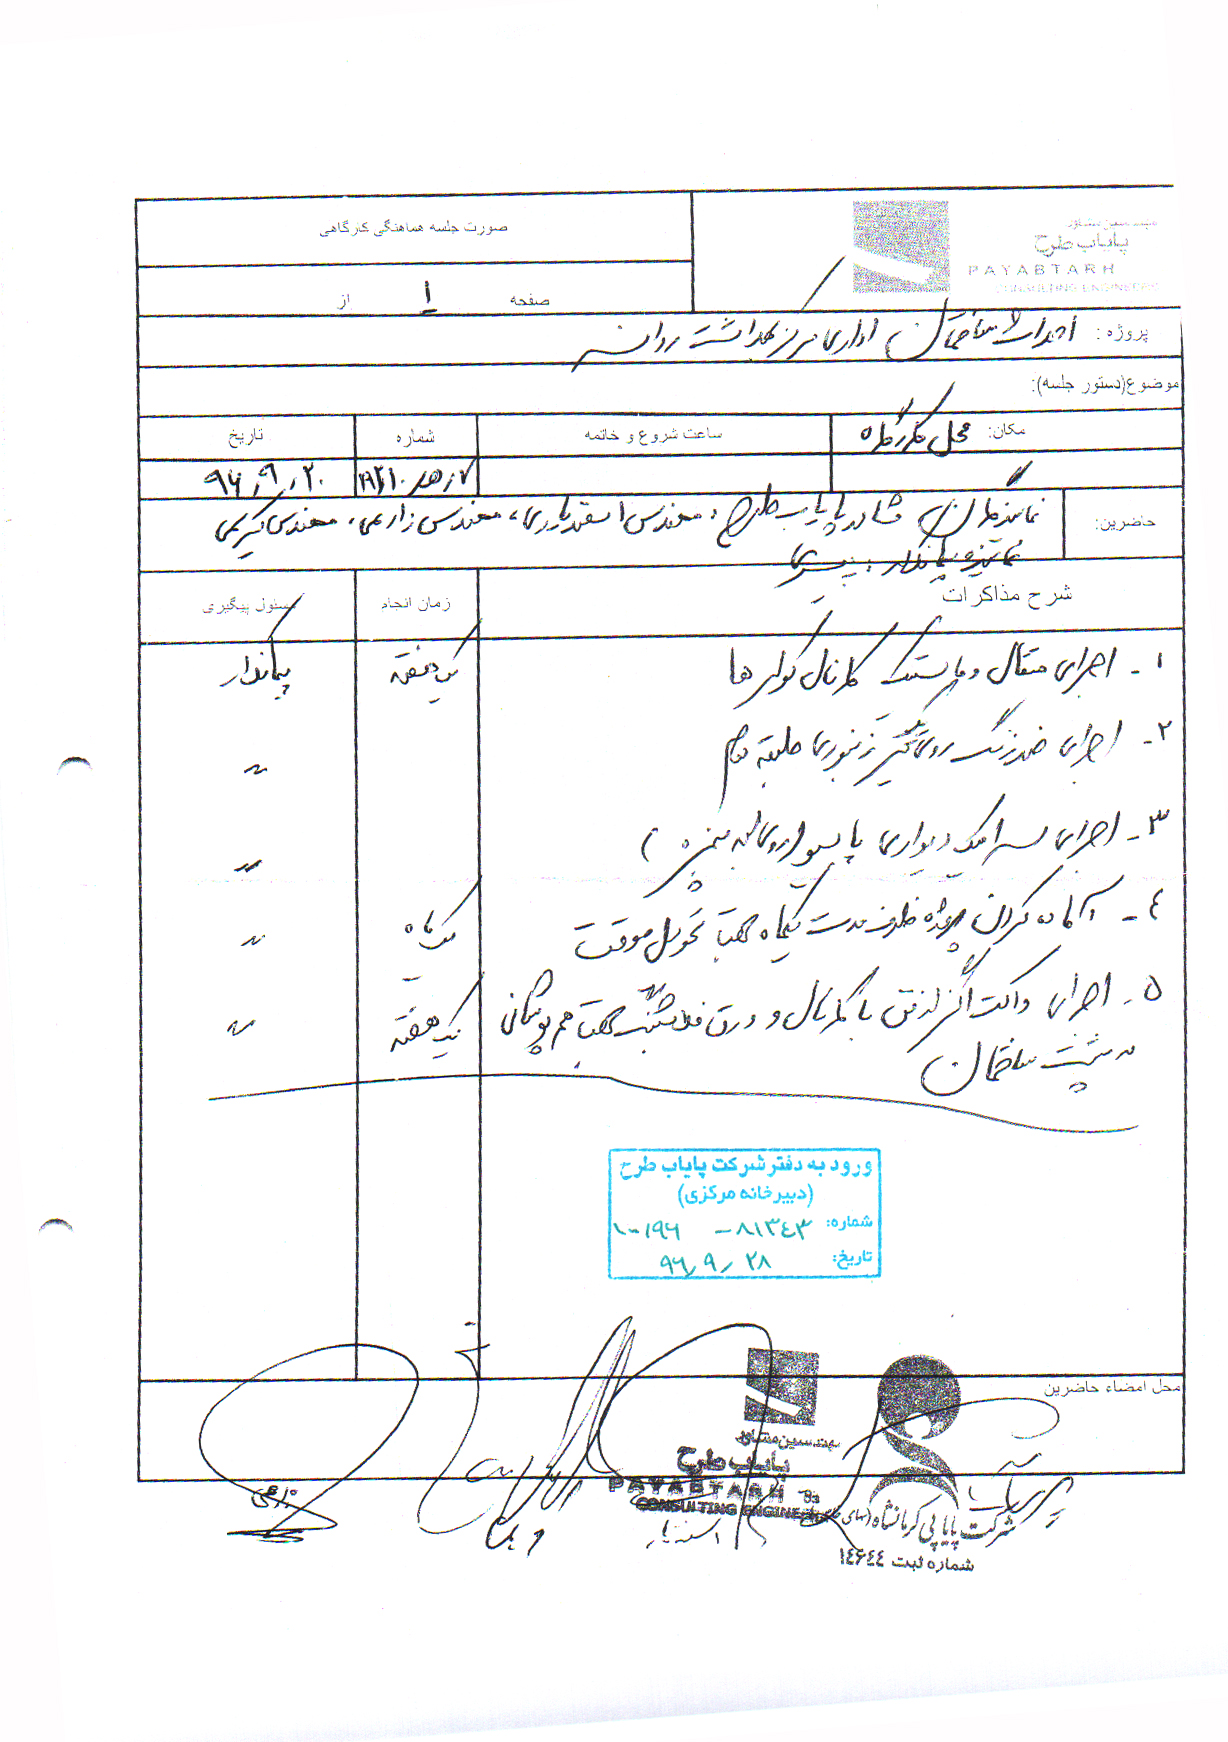 مهندسین مشاور
پایاب طرح
PAYABTARH
CONSULTING ENGINEERS
صورت جلسه هماهنگی کارگاهی
صفحه ۱ از
پروژه: احداث ساختمان اداری مرکز بهداشت روانسر
موضوع(دستور جلسه):
مکان: محل کارگاه
ساعت شروع و خاتمه
شماره
تاریخ
۹۶/۹/۲۰
حاضرین: نمایندگان مشاور پایاب طرح: مهندس اسفندیاری، مهندس زارعی، مهندس کریمی
نماینده پیمانکار:
شرح مذاکرات
زمان انجام
مسئول پیگیری
۱- اجرای متقال و ماستیک کانال کولرها
یک هفته
پیمانکار
۲- اجرای ضدزنگ روی تیر زنبوری طبقه
〃
۳- اجرای سرامیک دیواری (روی لبه پنجره)
〃
۴- آماده کردن پروژه ظرف مدت یکماه جهت تحویل موقت
یک ماه
〃
۵- اجرای داکت اگزاز فن با کانال و ورق جهت هم پوشانی
یک هفته
〃
در پشت ساختمان
ورود به دفتر شرکت پایاب طرح
(دبیرخانه مرکزی)
شماره: ۸۱۳۴۳- ۱۰-۱۹۶
تاریخ: ۹۶/۹/۲۸
محل امضاء حاضرین
مهندسین مشاور
پایاب طرح
PAYABTARH
CONSULTING ENGINEERS
شرکت پایا پی کرمانشاه
شماره ثبت ۱۴۶۴۴
زارعی